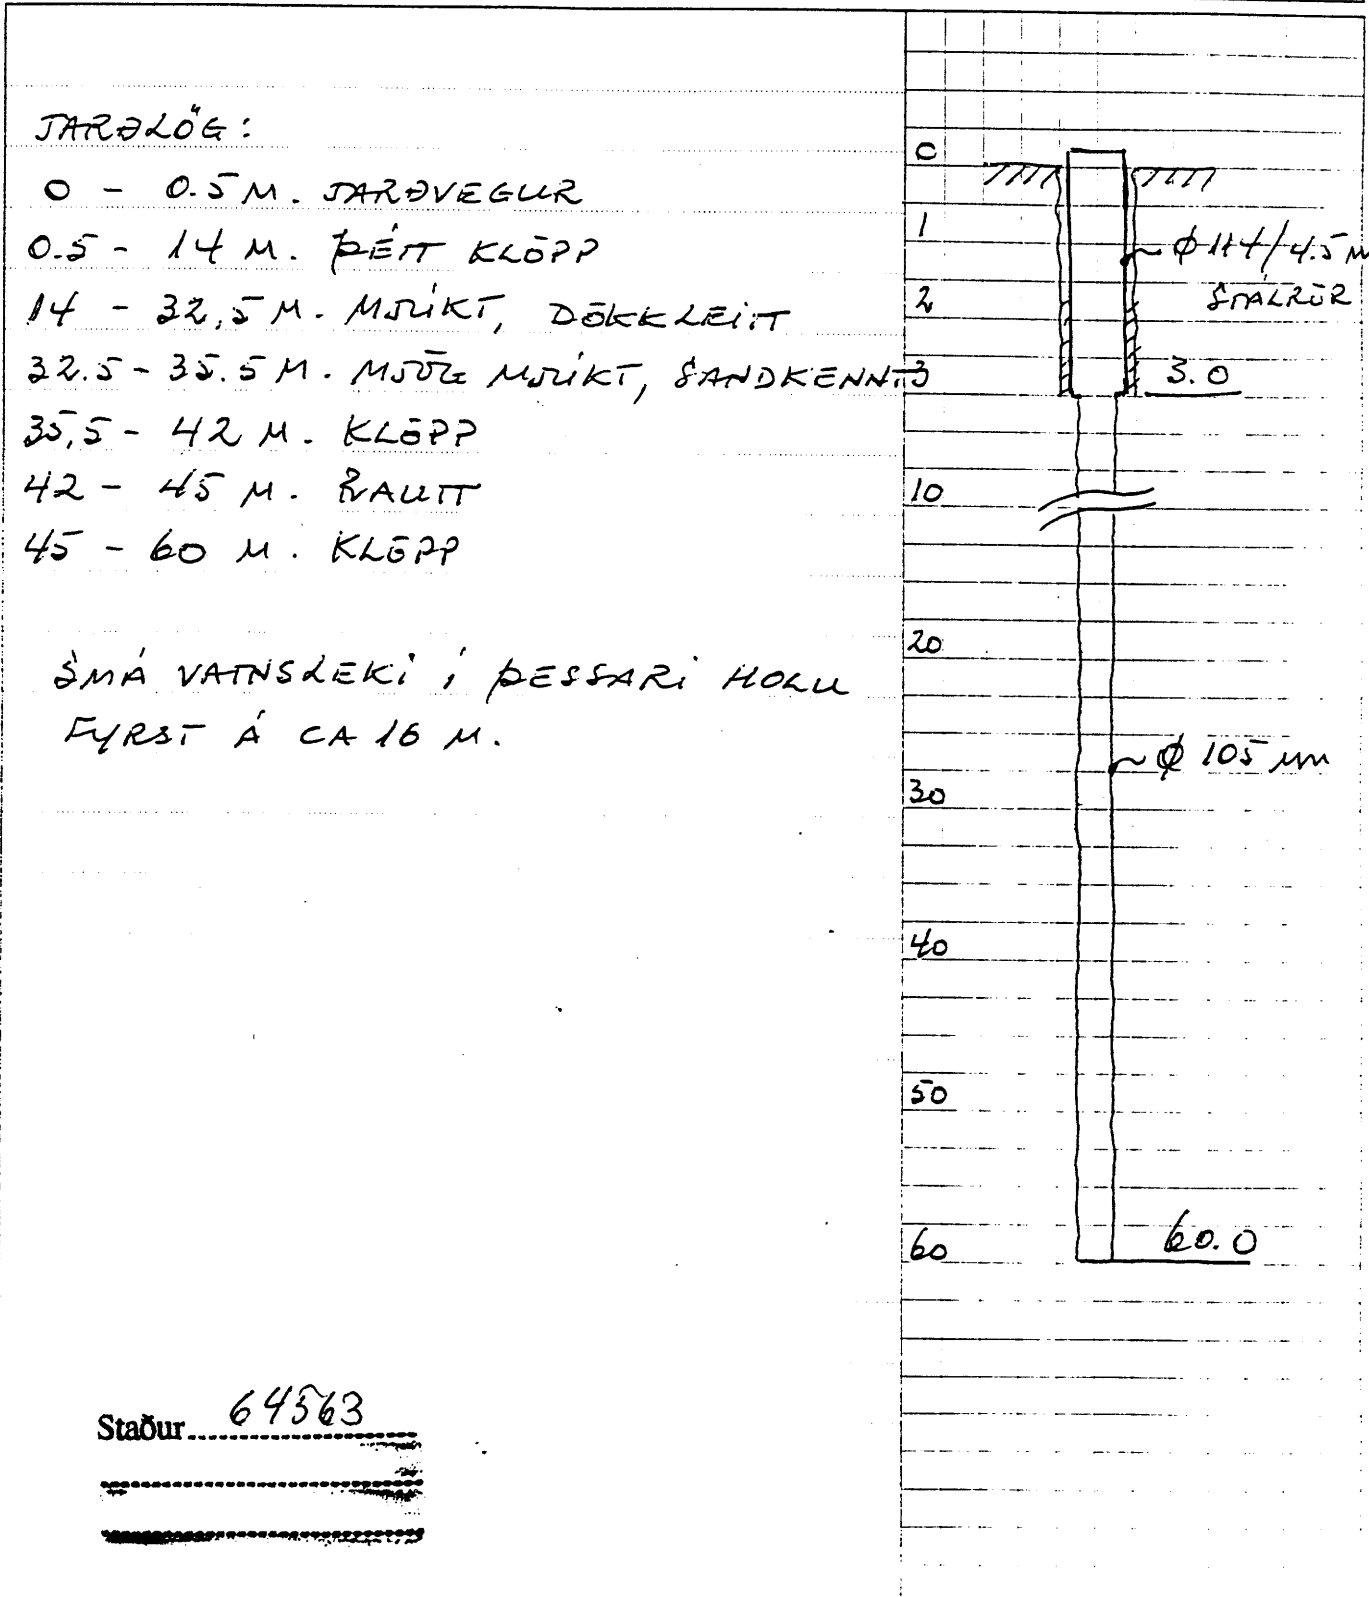 JARÐLÖG:
0 - 0.5 M. JARÐVEGUR
0.5 - 14 M. ÞÉTT KLÖPP
14 - 32,5 M. MJÚKT, DÖKKLEITT
32.5 - 35.5 M. MJÖG MJÚKT, SANDKENNT
35,5 - 42 M. KLÖPP
42 - 45 M. RAUTT
45 - 60 M. KLÖPP
SMÁ VATNSLEKI Í ÞESSARI HOLU
FYRST Á CA 16 M.
0
1
2
3
10
20
30
40
50
60
φ 114/4.5 M
STÁLRÖR
3.0
φ 105 mm
60.0
Staður 64563